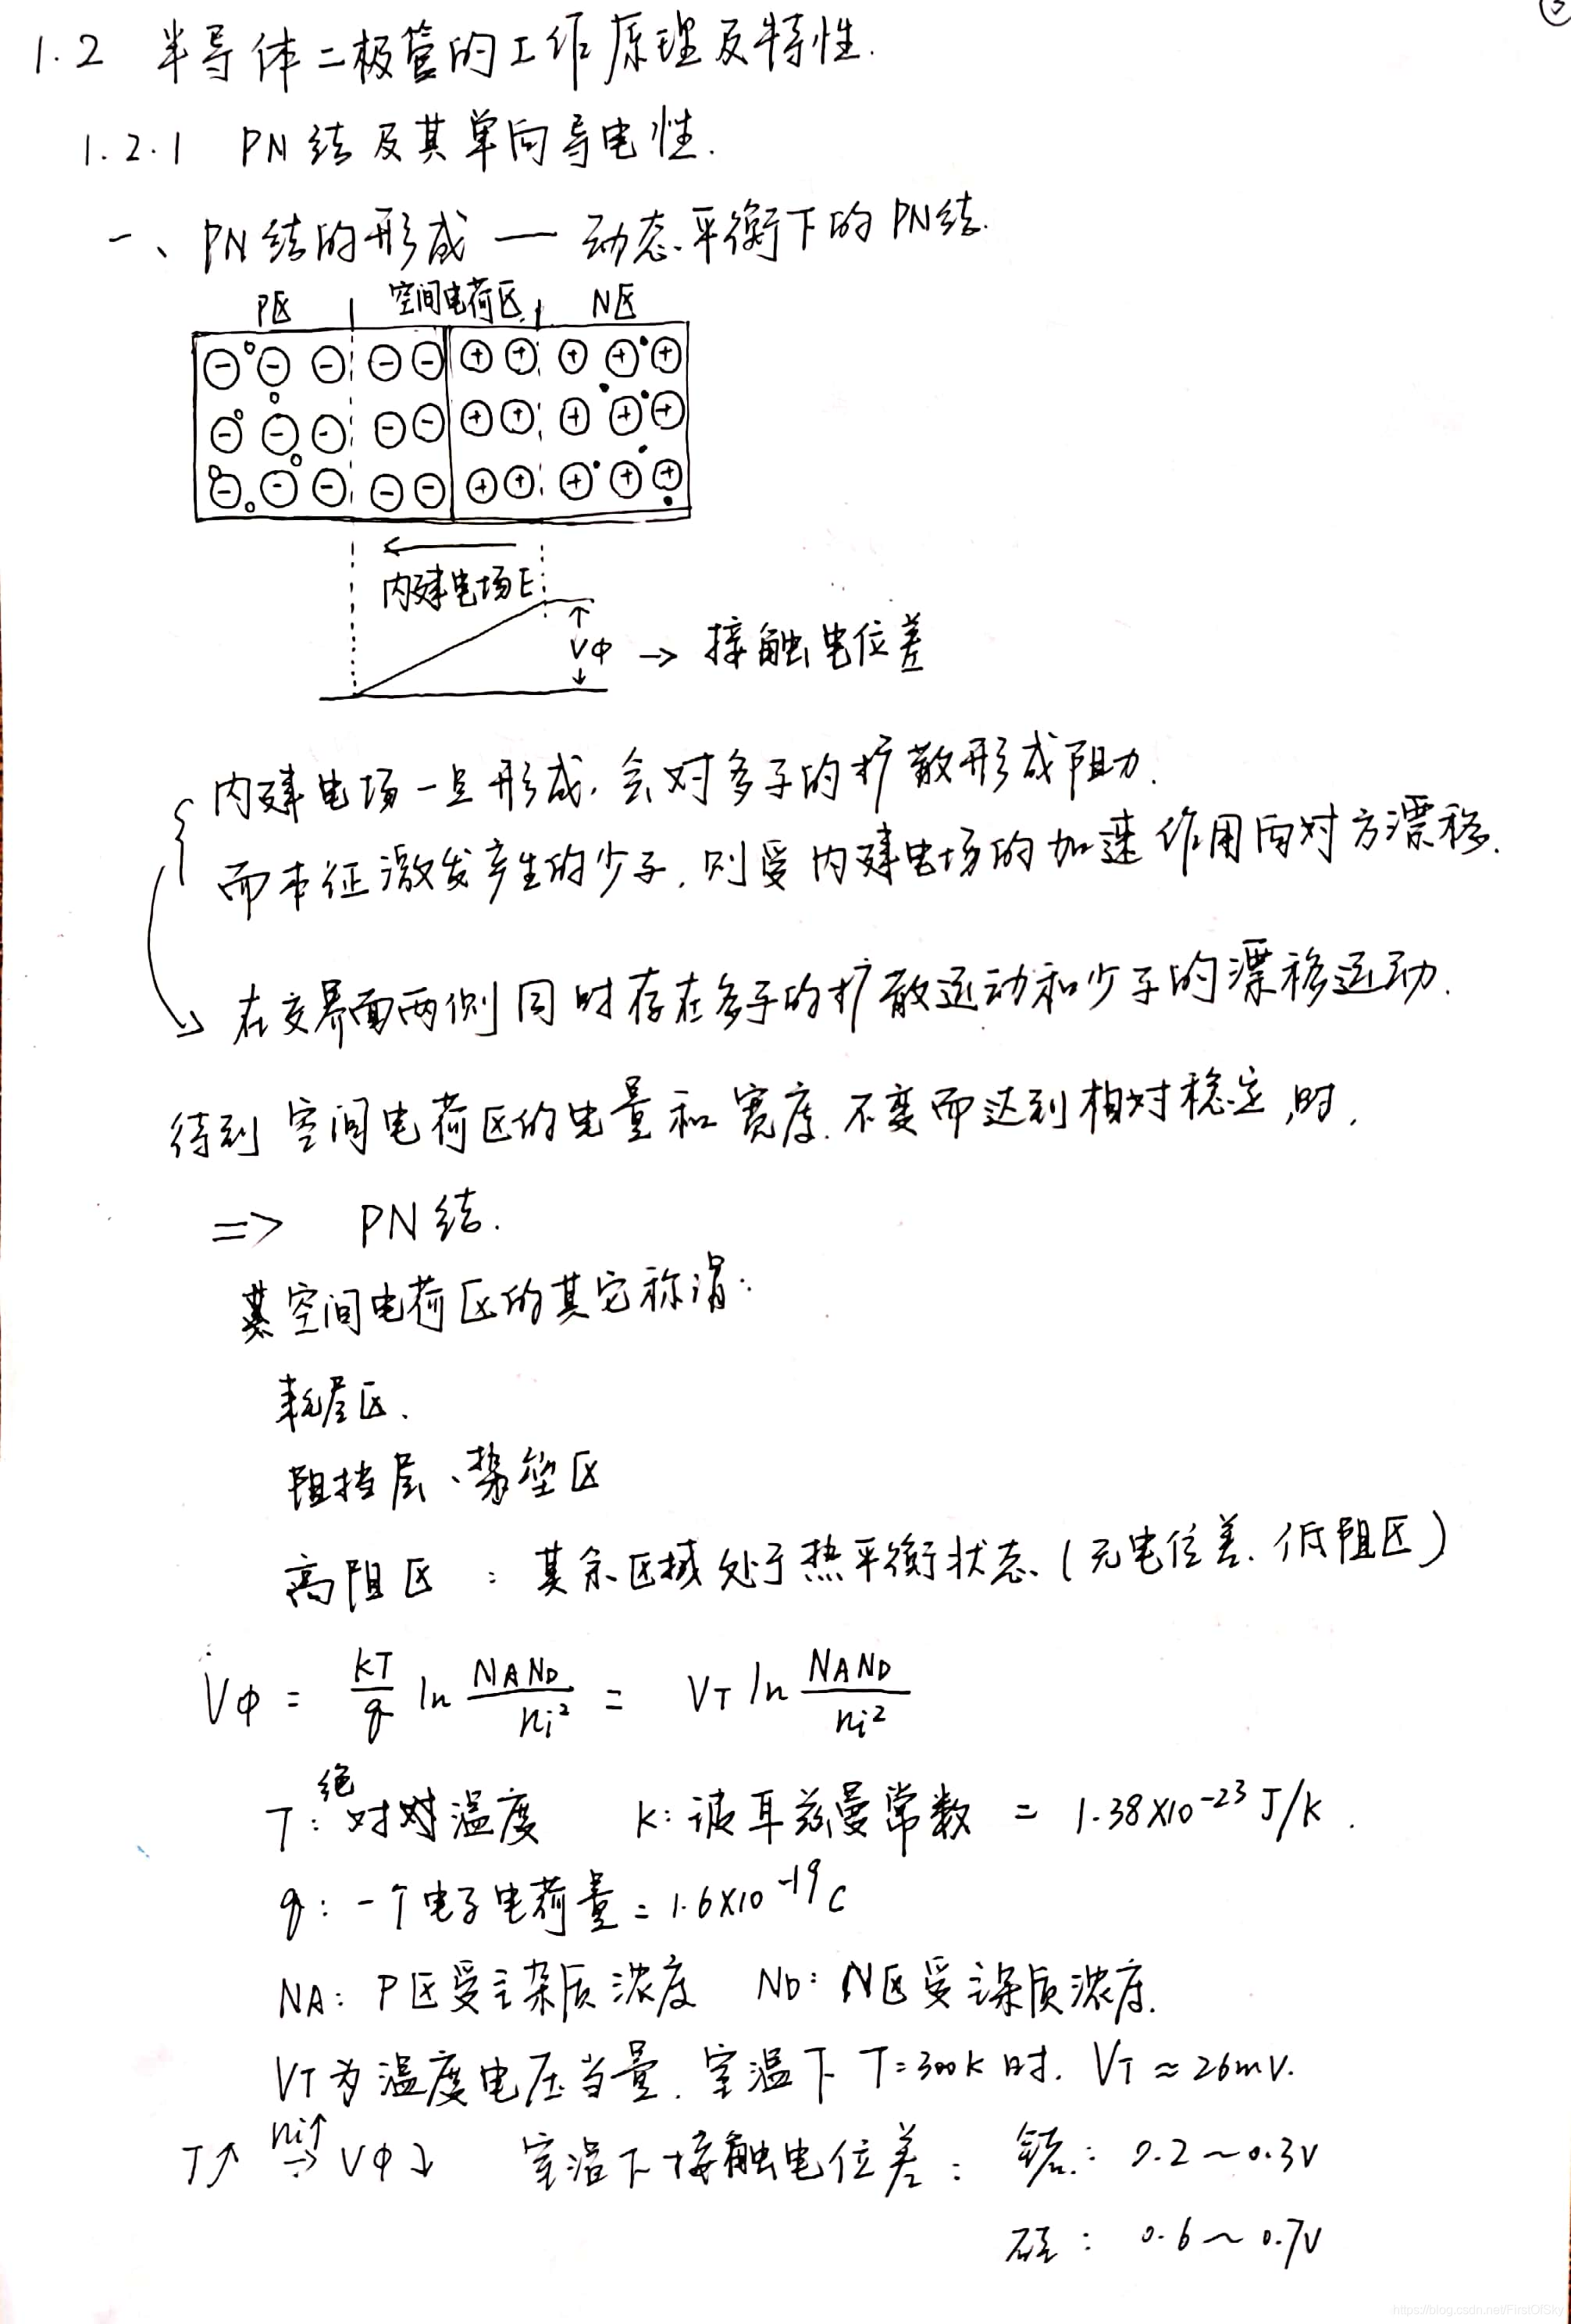 1.2 半导体二极管的工作原理及特性.
1.2.1 PN结及其单向导电性.
一、PN结的形成 — 动态平衡下的PN结.
P区 空间电荷区 N区
内建电场E
Vφ → 接触电位差
内建电场一旦形成,会对多子的扩散形成阻力.
而本征激发产生的少子,则受内建电场的加速作用向对方漂移.
在交界面两侧同时存在多子的扩散运动和少子的漂移运动.
待到空间电荷区的电量和宽度不变而达到相对稳定时,
=> PN结.
空间电荷区的其它称谓:
耗尽区.
阻挡层、势垒区
高阻区:其余区域处于热平衡状态(无电位差.低阻区)
Vφ = kT/q ln NAND/ni² = VT ln NAND/ni²
T:绝对温度 K:波耳兹曼常数 = 1.38×10⁻²³ J/K.
q:一个电子电荷量 = 1.6×10⁻¹⁹C
NA:P区受主杂质浓度 ND:N区受主杂质浓度.
VT为温度电压当量.室温下T=300K时.VT≈26mV.
T↑ ni↑→ Vφ↓ 室温下接触电位差:锗:0.2~0.3V
硅:0.6~0.7V
https://blog.csdn.net/FirstOfSky